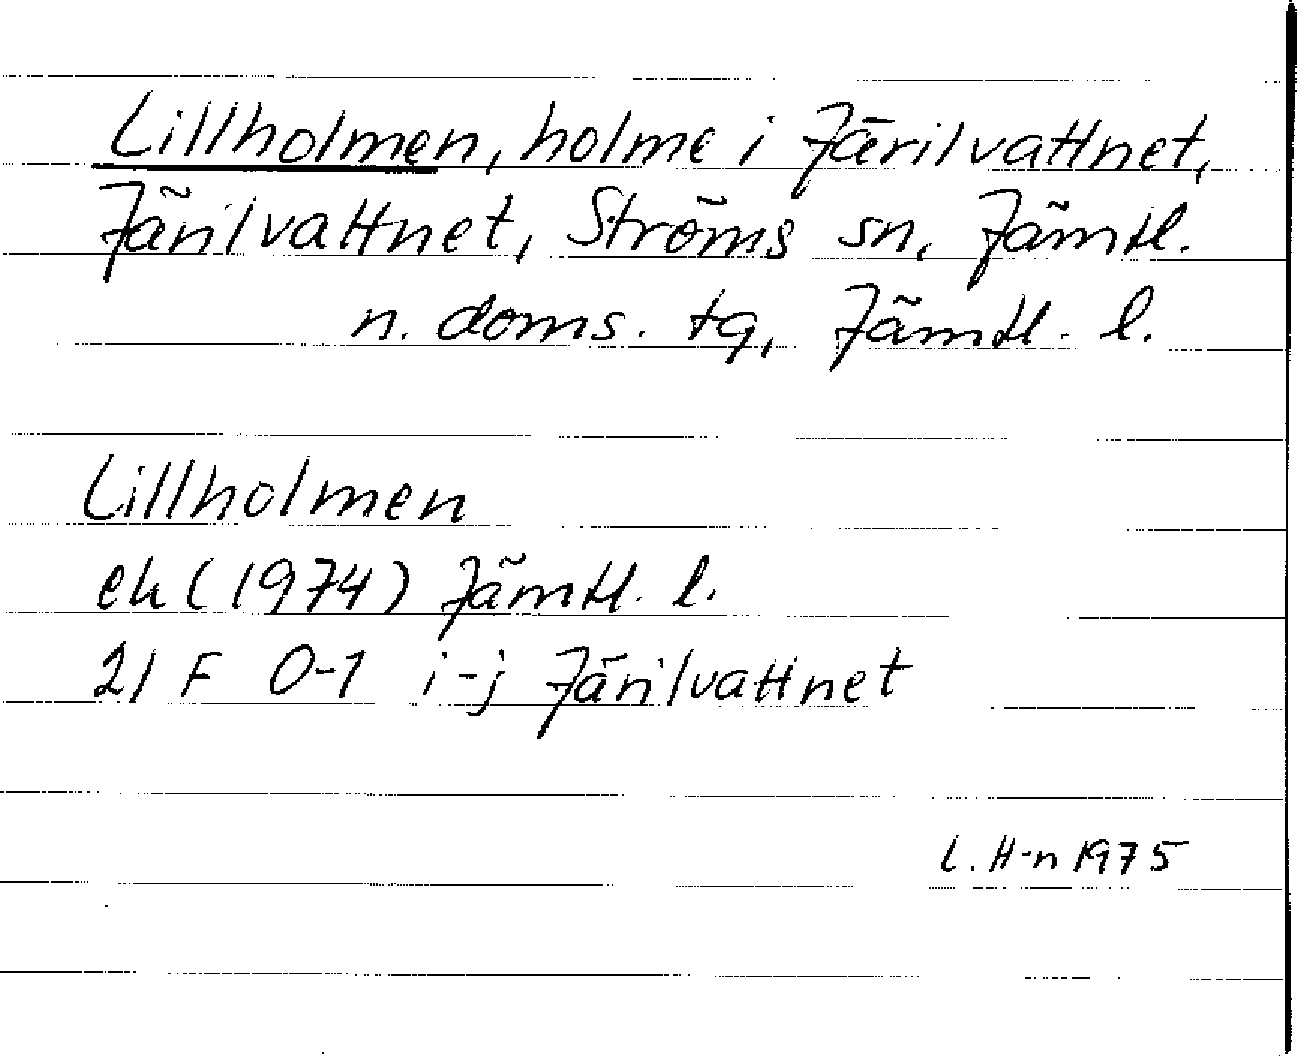 Lillholmen, holme i Järilvattnet,
Järilvattnet, Ströms sn, Jämtl.
n. doms. tg, Jämtl. l.
Lillholmen
ek (1974) Jämtl. l.
21 F 0-1 i-j Järilvattnet
L. H-n 1975